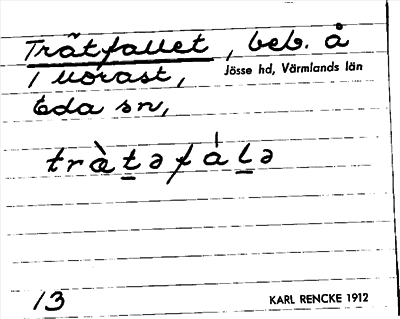 Trätfallet, beb. å
1 Morast, Jösse hd, Värmlands län
Eda sn,
trä̀təfálə
13 KARL RENCKE 1912